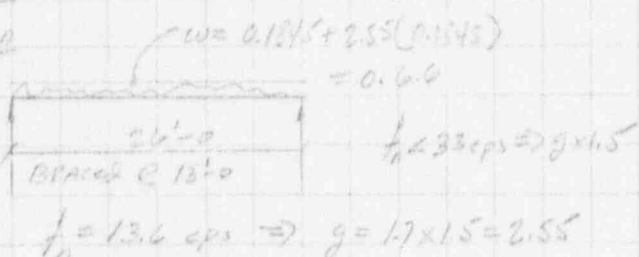 w = 0.1845 + 2.55(0.1845)
= 0.6.6
26'-0
BRACED @ 13'-0
fn < 33 cps => g x 1.5
fn = 13.6 cps => g = 1.7 x 1.5 = 2.55